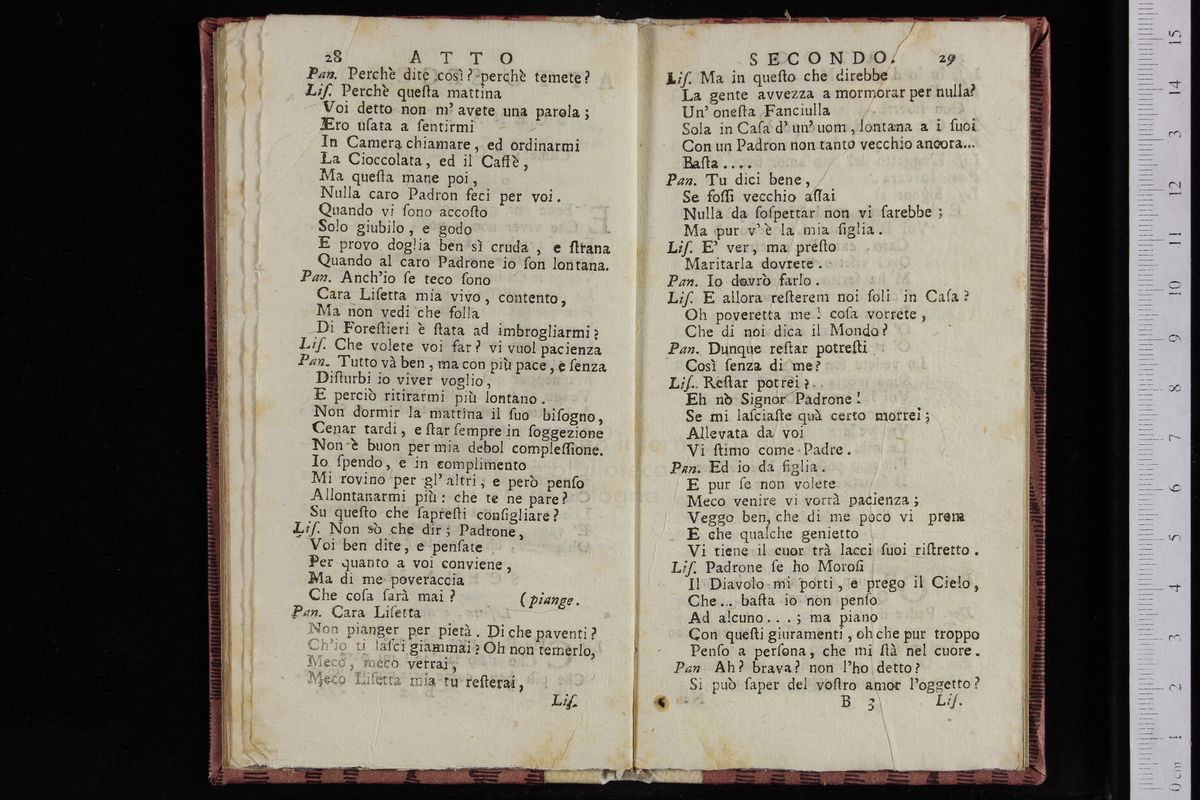 28 ATTO
Pan. Perchè dite così? perchè temete?
Liſ. Perchè queſta mattina
Voi detto non m' avete una parola;
Ero uſata a ſentirmi
In Camera chiamare, ed ordinarmi
La Cioccolata, ed il Caffè,
Ma queſta mane poi,
Nulla caro Padron feci per voi.
Quando vi ſono accoſto
Solo giubilo, e godo
E provo doglia ben sì cruda, e ſtrana
Quando al caro Padrone io ſon lontana.
Pan. Anch'io ſe teco ſono
Cara Liſetta mia vivo, contento,
Ma non vedi che folla
Di Foreſtieri è ſtata ad imbrogliarmi?
Liſ. Che volete voi far? vi vuol pacienza
Pan. Tutto và ben, ma con più pace, e ſenza
Diſturbi io viver voglio,
E perciò ritirarmi più lontano.
Non dormir la mattina il ſuo biſogno,
Cenar tardi, e ſtar ſempre in ſoggezione
Non è buon per mia debol compleſſione.
Io ſpendo, e in complimento
Mi rovino per gl' altri, e però penſo
Allontanarmi più: che te ne pare?
Su queſto che ſapreſti conſigliare?
Liſ. Non sò che dir; Padrone,
Voi ben dite, e penſate
Per quanto a voi conviene,
Ma di me poveraccia
Che coſa ſarà mai? (piange.
Pan. Cara Liſetta
Non pianger per pietà. Di che paventi?
Ch'io ti laſci giammai? Oh non temerlo,
Meco, meco verrai,
Meco Liſetta mia tu reſterai,
Liſ.
SECONDO. 29
Liſ. Ma in queſto che direbbe
La gente avvezza a mormorar per nulla?
Un' oneſta Fanciulla
Sola in Caſa d' un' uom, lontana a i ſuoi
Con un Padron non tanto vecchio ancora...
Baſta....
Pan. Tu dici bene,
Se foſſi vecchio aſſai
Nulla da ſoſpettar non vi ſarebbe;
Ma pur v' è la mia figlia.
Liſ. E' ver, ma preſto
Maritarla dovrete.
Pan. Io dovrò farlo.
Liſ. E allora reſterem noi ſoli in Caſa?
Oh poveretta me! coſa vorrete,
Che di noi dica il Mondo?
Pan. Dunque reſtar potreſti
Così ſenza di me?
Liſ. Reſtar potrei?
Eh nò Signor Padrone!
Se mi laſciaſte quà certo morrei;
Allevata da voi
Vi ſtimo come Padre.
Pan. Ed io da figlia.
E pur ſe non volete
Meco venire vi vorrà pacienza;
Veggo ben, che di me poco vi prema
E che qualche genietto
Vi tiene il cuor trà lacci ſuoi riſtretto.
Liſ. Padrone ſe ho Moroſi
Il Diavolo mi porti, e prego il Cielo,
Che... baſta io non penſo
Ad alcuno...; ma piano
Con queſti giuramenti, oh che pur troppo
Penſo a perſona, che mi ſtà nel cuore.
Pan Ah? brava? non l'ho detto?
Si può ſaper del voſtro amor l'oggetto?
B 3 Liſ.